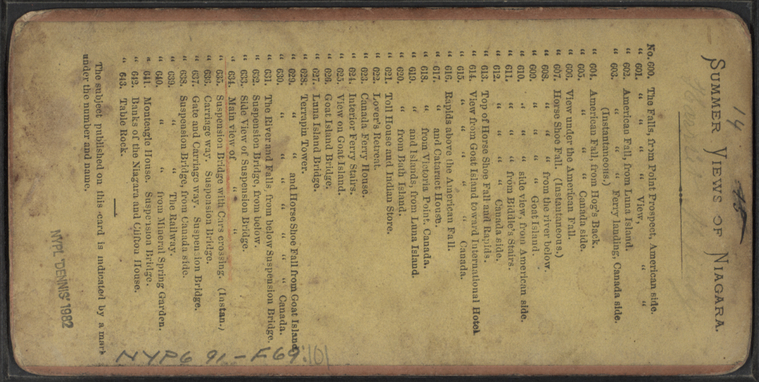 19
SUMMER VIEWS OF NIAGARA.
No. 600. The Falls, from Point Prospect, American side.
" 601. " " " View, " "
" 602. American Fall, from Luna Island.
" 603. " " " Ferry landing, Canada side.
(Instantaneous.)
" 604. American Fall, from Hog's Back.
" 605. " " " Canada side.
" 606. View under the American Fall.
" 607. Horse Shoe Fall, (Instantaneous.)
" 608. " " " from the river below.
" 609. " " " Goat Island.
" 610. " " " side view, from American side.
" 611. " " " from Biddle's Stairs.
" 612. " " " Canada side.
" 613. Top of Horse Shoe Fall and Rapids.
" 614. View from Goat Island toward International Hotel.
" 615. " " " " Canada.
" 616. Rapids above the American Fall.
" 617. " and Cataract House.
" 618. " from Victoria Point, Canada.
" 619. " and Islands, from Luna Island.
" 620. " from Bath Island.
" 621. Toll House and Indian Store.
" 622. Lover's Retreat.
" 623. Canada Ferry House.
" 624. Interior Ferry Stairs.
" 625. View on Goat Island.
" 626. Goat Island Bridge.
" 627. Luna Island Bridge.
" 628. Terrapin Tower.
" 629. " " and Horse Shoe Fall from Goat Island
" 630. " " " " " " Canada.
" 631. The River and Falls, from below Suspension Bridge.
" 632. Suspension Bridge, from below.
" 633. Side View of Suspension Bridge.
" 634. Main view of " "
" 635. Suspension Bridge with Cars crossing, (Instan.)
" 636. Carriage way, Suspension Bridge.
" 637. Gate and Carriage way, Suspension Bridge.
" 638. Suspension Bridge, from Canada side.
" 639. " " The Railway.
" 640. " " from Mineral Spring Garden.
" 641. Monteagle House, Suspension Bridge.
" 642. Banks of the Niagara and Clifton House.
" 643. Table Rock.
The subject published on this card is indicated by a mark
under the number and name.
NYPL "DENNIS" 1982
NYPG 91-F69:101